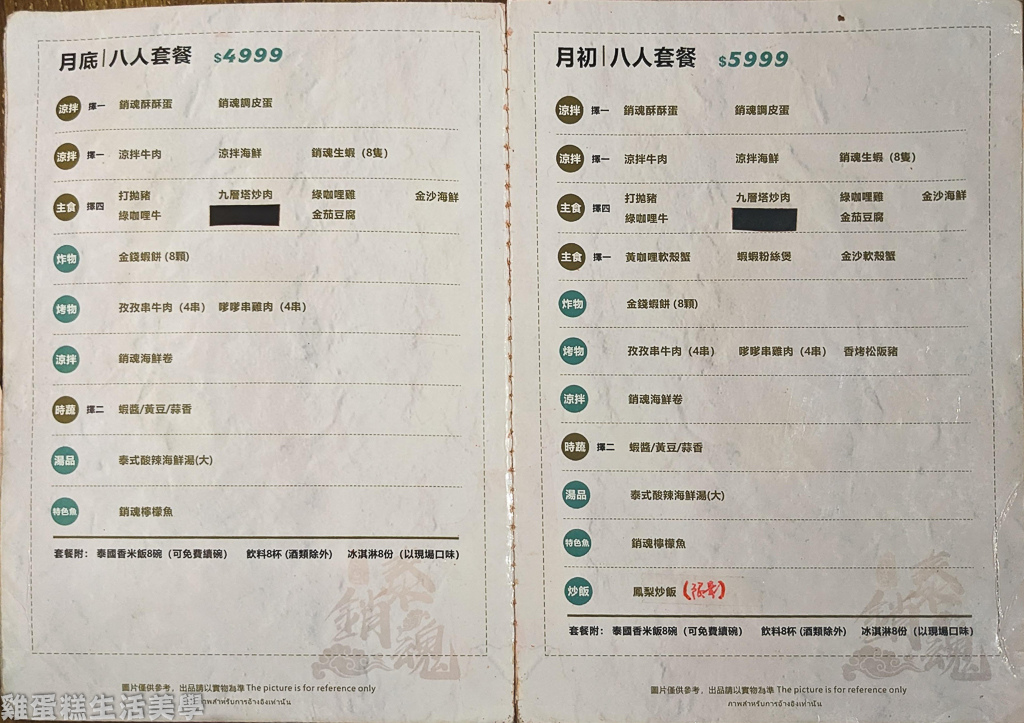 月底|八人套餐 $4999
涼拌 擇一 銷魂酥酥蛋 銷魂調皮蛋
涼拌 擇一 涼拌牛肉 涼拌海鮮 銷魂生蝦（8隻）
主食 擇四 打拋豬 九層塔炒肉 綠咖哩雞 金沙海鮮
綠咖哩牛 金茄豆腐
炸物 金錢蝦餅 (8顆)
烤物 孜孜串牛肉（4串） 嗲嗲串雞肉（4串）
涼拌 銷魂海鮮卷
時蔬 擇二 蝦醬/黃豆/蒜香
湯品 泰式酸辣海鮮湯(大)
特色魚 銷魂檸檬魚
套餐附： 泰國香米飯8碗（可免費續碗） 飲料8杯 (酒類除外) 冰淇淋8份（以現場口味）
泰銷魂
圖片僅供參考，出品請以實物為準 The picture is for reference only
ภาพสำหรับการอ้างอิงเท่านั้น
月初|八人套餐 $5999
涼拌 擇一 銷魂酥酥蛋 銷魂調皮蛋
涼拌 擇一 涼拌牛肉 涼拌海鮮 銷魂生蝦（8隻）
主食 擇四 打拋豬 九層塔炒肉 綠咖哩雞 金沙海鮮
綠咖哩牛 金茄豆腐
主食 擇一 黃咖哩軟殼蟹 蝦蝦粉絲煲 金沙軟殼蟹
炸物 金錢蝦餅 (8顆)
烤物 孜孜串牛肉（4串） 嗲嗲串雞肉（4串） 香烤松阪豬
涼拌 銷魂海鮮卷
時蔬 擇二 蝦醬/黃豆/蒜香
湯品 泰式酸辣海鮮湯(大)
特色魚 銷魂檸檬魚
炒飯 鳳梨炒飯
套餐附： 泰國香米飯8碗（可免費續碗） 飲料8杯 (酒類除外) 冰淇淋8份（以現場口味）
泰銷魂
圖片僅供參考，出品請以實物為準 The picture is for reference only
ภาพสำหรับการอ้างอิงเท่านั้น
雞蛋糕生活美學